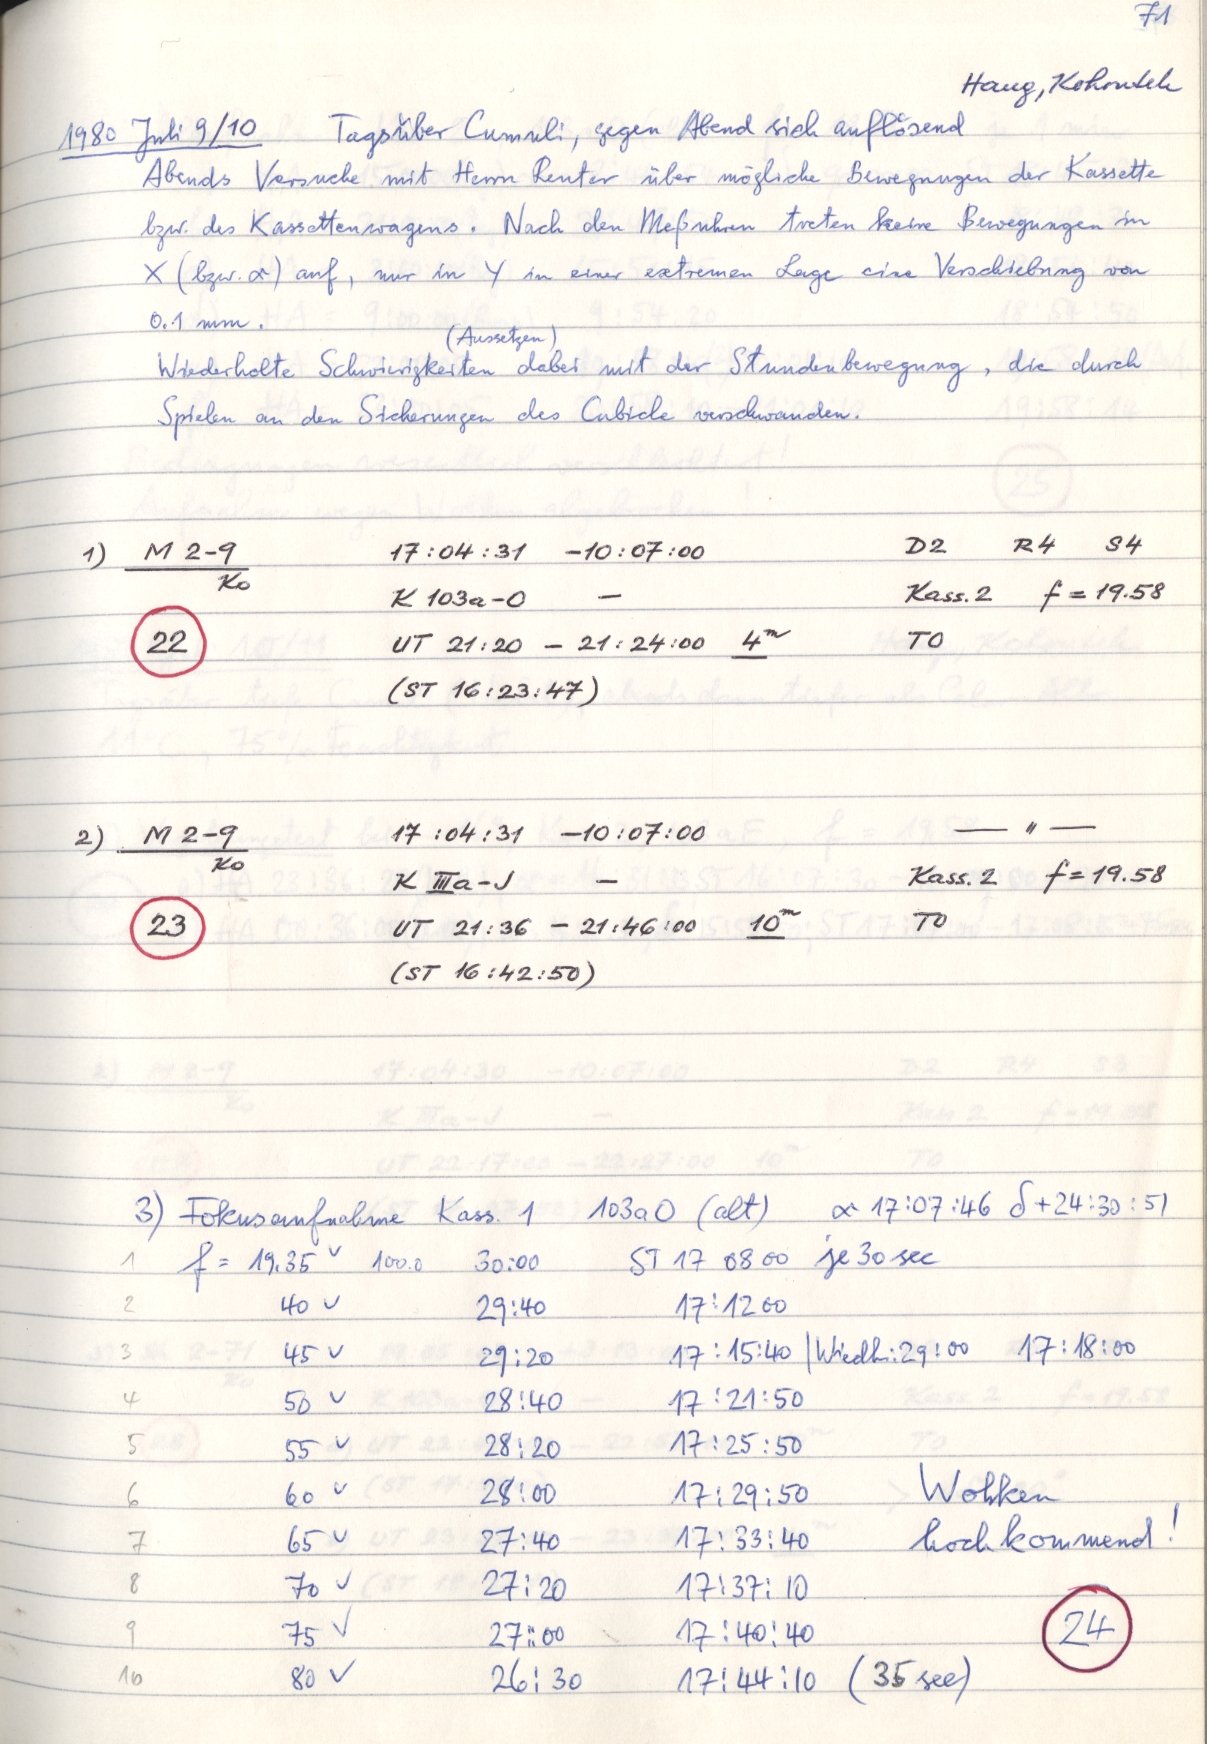 71
Haug, Kohoutek
1980 Juli 9/10 Tagsüber Cumuli, gegen Abend sich auflösend
Abends Versuche mit Herrn Reuter über mögliche Bewegungen der Kassette
bzw. des Kassettenwagens. Nach den Meßuhren treten keine Bewegungen in
X (bzw. α) auf, nur in Y in einer extremen Lage eine Verschiebung von
0.1 mm.
(Aussetzen)
Wiederholte Schwierigkeiten dabei mit der Stundenbewegung, die durch
Spielen an den Sicherungen des Cubicle verschwanden.
1) M 2-9 17:04:31 -10:07:00 D2 R4 S4
Ko K 103a-O — Kass. 2 f = 19.58
22 UT 21:20 - 21:24:00 4m TO
(ST 16:23:47)
2) M 2-9 17:04:31 -10:07:00 — " —
Ko K IIIa-J — Kass. 2 f = 19.58
23 UT 21:36 - 21:46:00 10m TO
(ST 16:42:50)
3) Fokusaufnahme Kass. 1 103aO (alt) α 17:07:46 δ +24:30:51
1 f = 19.35 ✓ 100.0 30:00 ST 17 08 00 je 30 sec
2 40 ✓ 29:40 17:12 00
3 45 ✓ 29:20 17:15:40 | Wiedh.: 29:00 17:18:00
4 50 ✓ 28:40 17:21:50
5 55 ✓ 28:20 17:25:50
6 60 ✓ 28:00 17:29:50 Wolken
7 65 ✓ 27:40 17:33:40 hochkommend!
8 70 ✓ 27:20 17:37:10
9 75 ✓ 27:00 17:40:40 24
10 80 ✓ 26:30 17:44:10 (35 sec)